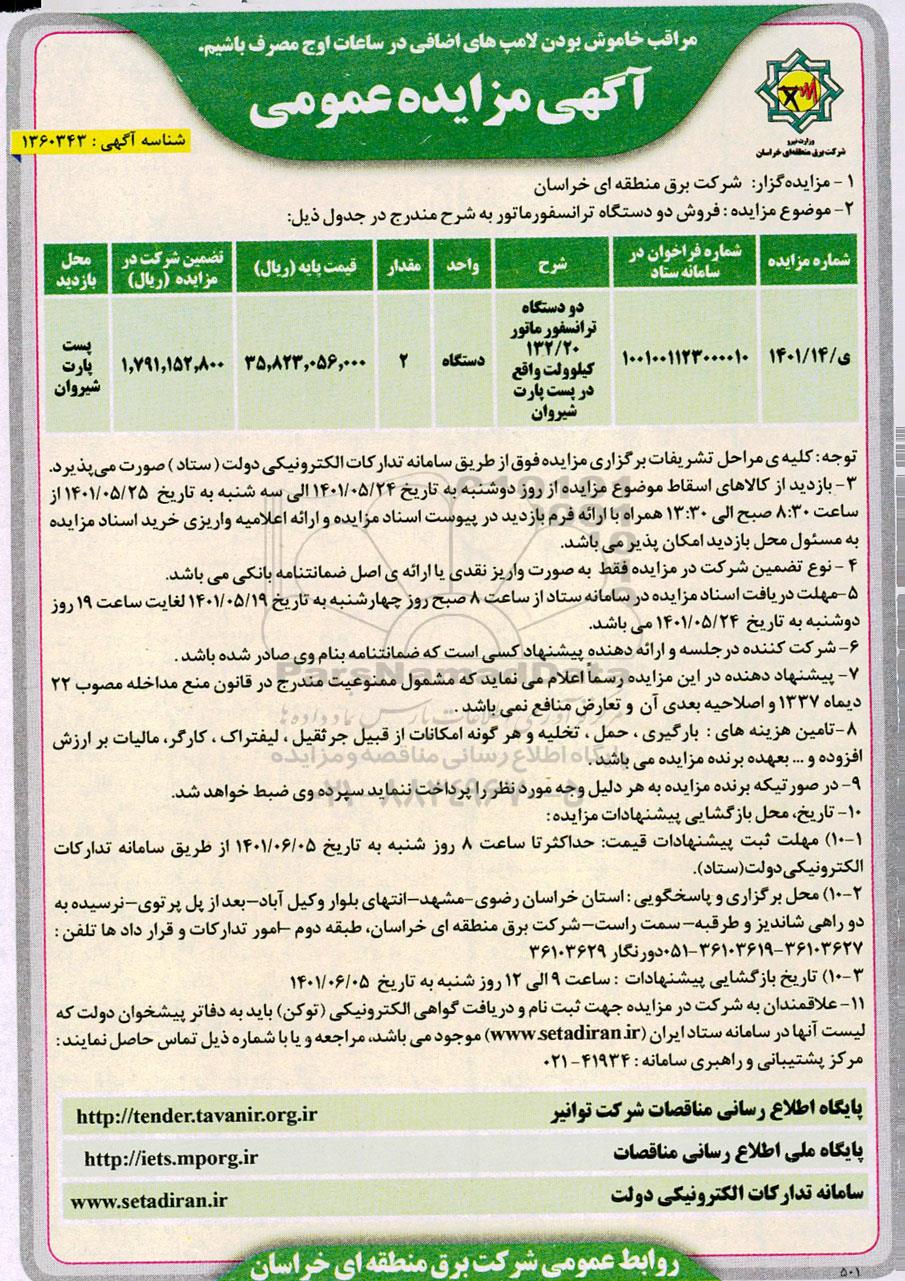 مراقب خاموش بودن لامپ های اضافی در ساعات اوج مصرف باشیم.
آگهی مزایده عمومی
وزارت نیرو
شرکت برق منطقه‌ای خراسان
شناسه آگهی : ۱۳۶۰۳۴۳
۱- مزایده‌گزار: شرکت برق منطقه ای خراسان
۲- موضوع مزایده : فروش دو دستگاه ترانسفورماتور به شرح مندرج در جدول ذیل:
شماره مزایده
شماره فراخوان در سامانه ستاد
شرح
واحد
مقدار
قیمت پایه (ریال)
تضمین شرکت در مزایده (ریال)
محل بازدید
ی/۱۴۰۱/۱۴
۱۰۰۱۰۰۱۱۲۳۰۰۰۰۱۰
دو دستگاه
ترانسفورماتور
۱۳۲/۲۰
کیلوولت واقع
در پست پارت
شیروان
دستگاه
۲
۳۵,۸۲۳,۰۵۶,۰۰۰
۱,۷۹۱,۱۵۲,۸۰۰
پست
پارت
شیروان
توجه : کلیه ی مراحل تشریفات برگزاری مزایده فوق از طریق سامانه تدارکات الکترونیکی دولت ( ستاد ) صورت می‌پذیرد.
۳- بازدید از کالاهای اسقاط موضوع مزایده از روز دوشنبه به تاریخ ۱۴۰۱/۰۵/۲۴ الی سه شنبه به تاریخ ۱۴۰۱/۰۵/۲۵ از
ساعت ۸:۳۰ صبح الی ۱۳:۳۰ همراه با ارائه فرم بازدید در پیوست اسناد مزایده و ارائه اعلامیه واریزی خرید اسناد مزایده
به مسئول محل بازدید امکان پذیر می باشد.
۴ - نوع تضمین شرکت در مزایده فقط به صورت واریز نقدی یا ارائه ی اصل ضمانتنامه بانکی می باشد.
۵-مهلت دریافت اسناد مزایده در سامانه ستاد از ساعت ۸ صبح روز چهارشنبه به تاریخ ۱۴۰۱/۰۵/۱۹ لغایت ساعت ۱۹ روز
دوشنبه به تاریخ ۱۴۰۱/۰۵/۲۴ می باشد.
۶- شرکت کننده درجلسه و ارائه دهنده پیشنهاد کسی است که ضمانتنامه بنام وی صادر شده باشد .
۷- پیشنهاد دهنده در این مزایده رسماً اعلام می نماید که مشمول ممنوعیت مندرج در قانون منع مداخله مصوب ۲۲
دیماه ۱۳۳۷ و اصلاحیه بعدی آن و تعارض منافع نمی باشد .
۸-تامین هزینه های : بارگیری ، حمل ، تخلیه و هر گونه امکانات از قبیل جرثقیل ، لیفتراک ، کارگر، مالیات بر ارزش
افزوده و ... بعهده برنده مزایده می باشد .
۹- در صورتیکه برنده مزایده به هر دلیل وجه مورد نظر را پرداخت ننماید سپرده وی ضبط خواهد شد.
۱۰- تاریخ، محل بازگشایی پیشنهادات مزایده :
۱۰-۱) مهلت ثبت پیشنهادات قیمت: حداکثر تا ساعت ۸ روز شنبه به تاریخ ۱۴۰۱/۰۶/۰۵ از طریق سامانه تدارکات
الکترونیکی دولت(ستاد).
۱۰-۲) محل برگزاری و پاسخگویی : استان خراسان رضوی-مشهد-انتهای بلوار وکیل آباد-بعد از پل پرتوی-نرسیده به
دو راهی شاندیز و طرقبه- سمت راست- شرکت برق منطقه ای خراسان، طبقه دوم -امور تدارکات و قرار داد ها تلفن :
۳۶۱۰۳۶۲۷-۳۶۱۰۳۶۱۹-۰۵۱دورنگار ۳۶۱۰۳۶۲۹
۱۰-۳) تاریخ بازگشایی پیشنهادات : ساعت ۹ الی ۱۲ روز شنبه به تاریخ ۱۴۰۱/۰۶/۰۵
۱۱- علاقمندان به شرکت در مزایده جهت ثبت نام و دریافت گواهی الکترونیکی (توکن) باید به دفاتر پیشخوان دولت که
لیست آنها در سامانه ستاد ایران (www.setadiran.ir) موجود می باشد، مراجعه و یا با شماره ذیل تماس حاصل نمایند :
مرکز پشتیبانی و راهبری سامانه : ۴۱۹۳۴-۰۲۱
پایگاه اطلاع رسانی مناقصات شرکت توانیر http://tender.tavanir.org.ir
پایگاه ملی اطلاع رسانی مناقصات http://iets.mporg.ir
سامانه تدارکات الکترونیکی دولت www.setadiran.ir
روابط عمومی شرکت برق منطقه ای خراسان
۵۰۱
ParsNamadData
پایگاه اطلاع رسانی مناقصه و مزایده